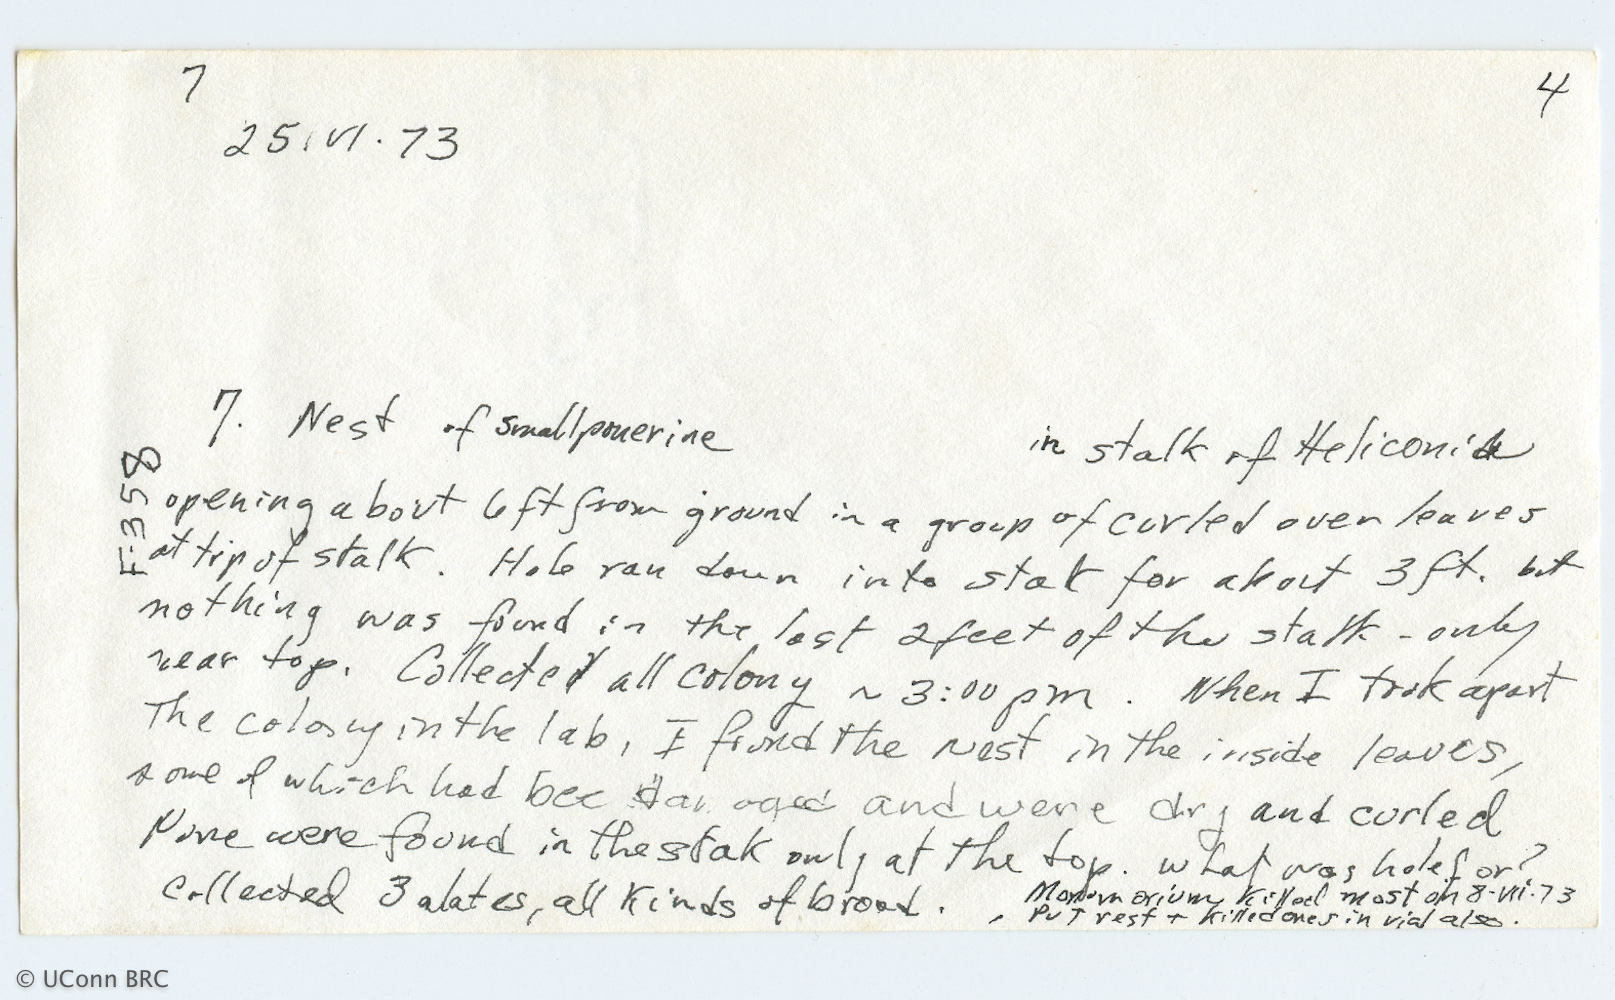 7 4
25.VI.73
7. Nest of small ponerine in stalk of Heliconia
F358
opening about 6 ft from ground in a group of curled over leaves
at tip of stalk. Hole ran down into stak for about 3 ft. but
nothing was found in the last 2 feet of the stalk - only
near top. Collected all colony ~ 3:00 pm. When I took apart
The colony in the lab, I found the nest in the inside leaves,
some of which had bee and were dry and curled
None were found in the stak only at the top. What was hole for?
Collected 3 alates, all kinds of brood.
Monomorium killed most on 8-VII-73
Put rest + killed ones in vial also.
© UConn BRC